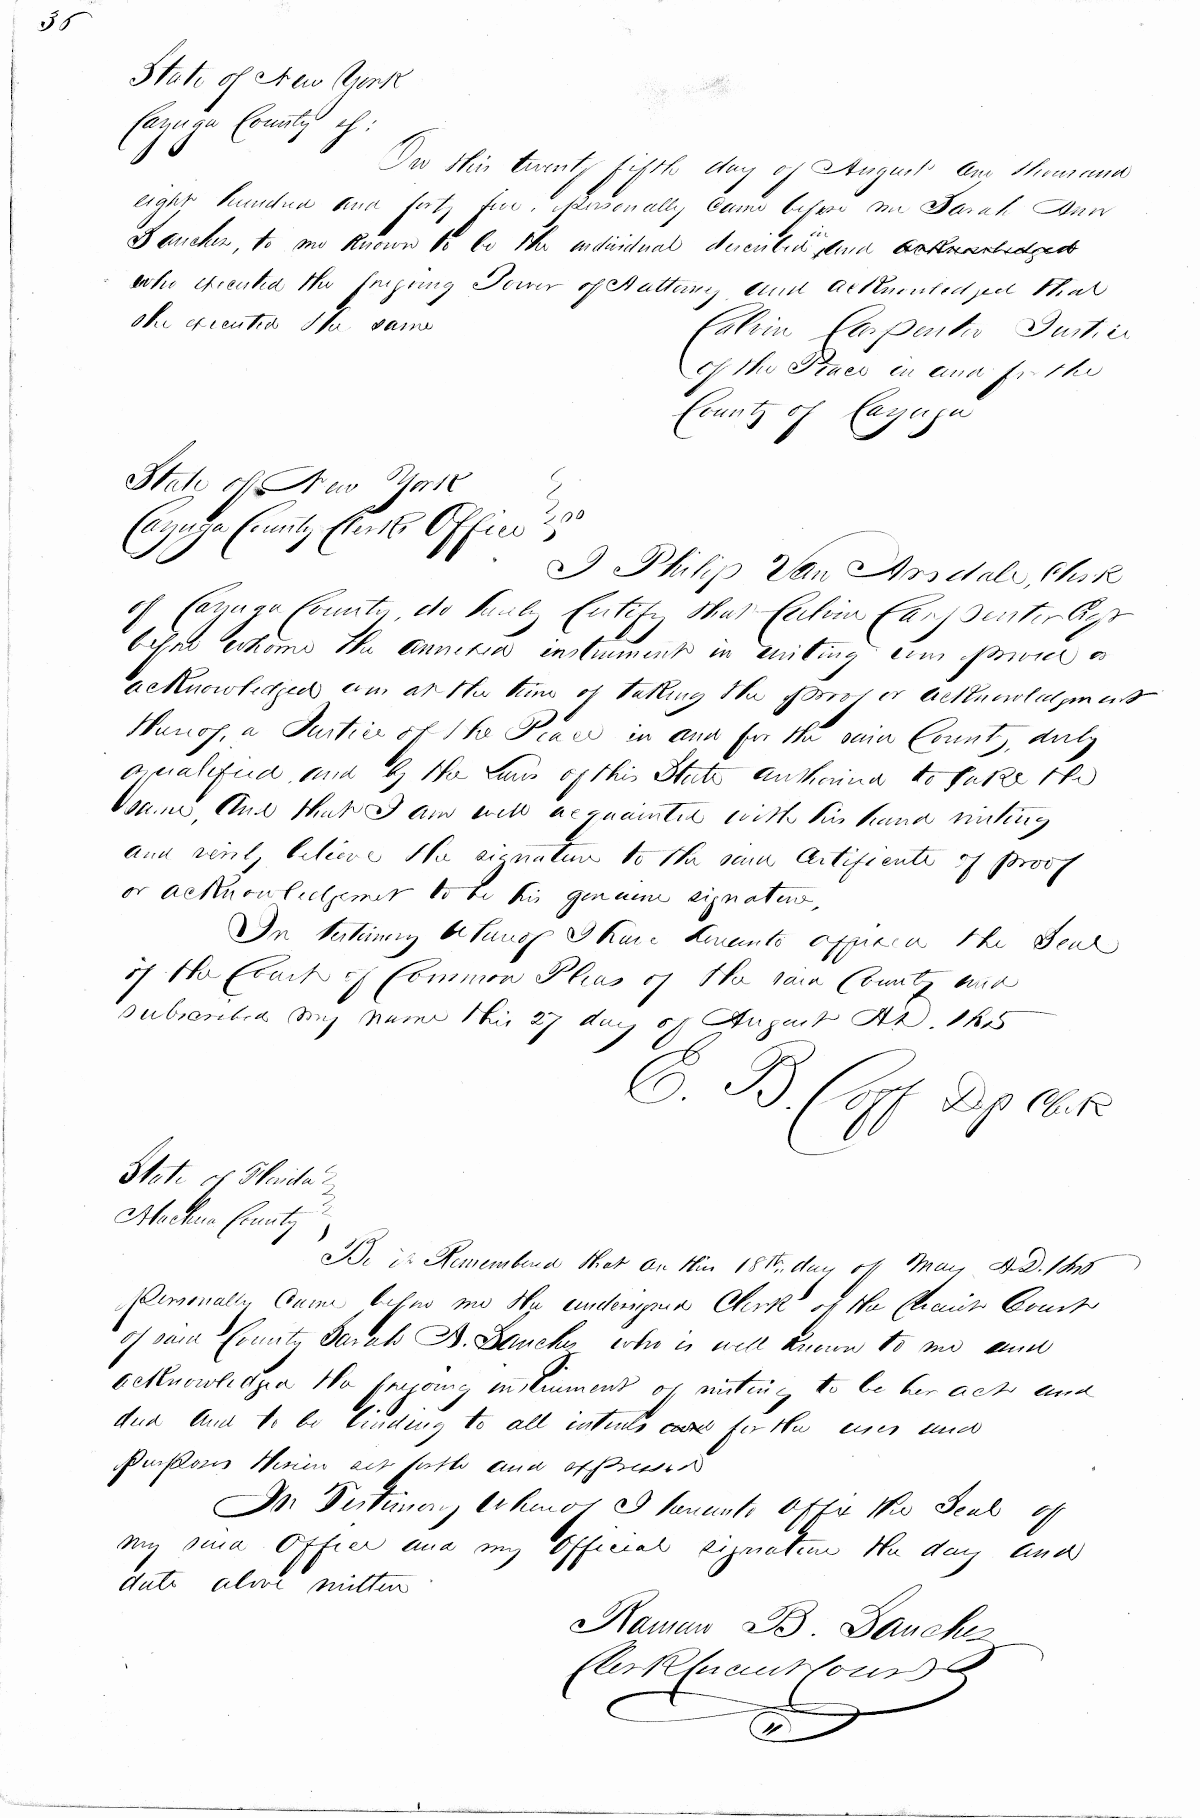 36
State of New York
Cayuga County ss:
On this twenty fifth day of August one thousand
eight hundred and forty five, personally came before me Sarah Ann
Sanchez, to me known to be the individual described in and acknowledged
who executed the foregoing Power of Attorney and acknowledged that
she executed the same
Calvin Carpenter Justice
of the Peace in and for the
County of Cayuga
State of New York
Cayuga County Clerks Office
I Philip Van Arsdale, Clerk
of Cayuga County, do hereby Certify that Calvin Carpenter Esqr
before whome the annexed instrument in writing was proved or
acknowledged was at the time of taking the proof or acknowledgment
thereof, a Justice of the Peace in and for the said County, duly
qualified, and by the Laws of this State authorised to take the
same, And that I am well acquainted with his hand writing
and verily believe the signature to the said Certificate of proof
or acknowledgemet to be his genuine signature,
In testimony Whereof I have hereunto affixed the Seal
of the Court of Common Pleas of the said County and
subscribed my name this 27 day of August A.D. 1845
E. B. Dep Clerk
State of Florida
Alachua County
Be it Remembered that on this 18th day of May A.D. 1845
Personally Came before me the undersigned Clerk of the Circuit Court
of said County Sarah A. Sanchez who is well known to me and
acknowledged the foregoing instrument of writing to be her act and
deed and to be binding to all intents and for the uses and
purposes therein set forth and expressed
In Testimony Whereof I hereunto affix the Seal of
my said Office and my Official signature the day and
date above written
B. Sanchez
Clerk Circuit Court